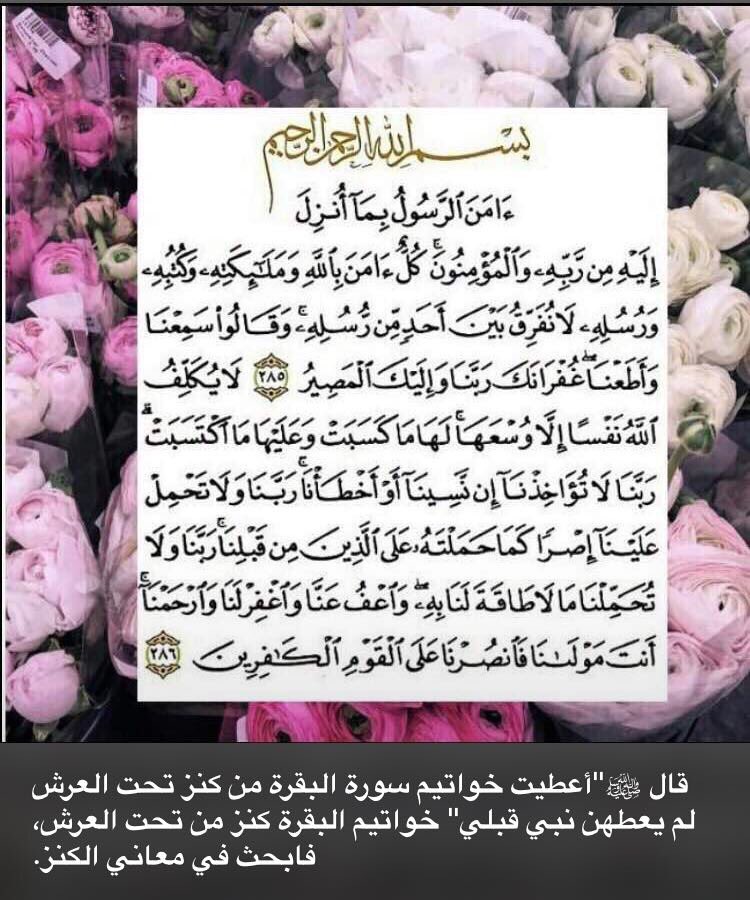 بِسْمِ اللهِ الرَّحْمٰنِ الرَّحِيمِ
ءَامَنَ ٱلرَّسُولُ بِمَآ أُنزِلَ
إِلَيْهِ مِن رَّبِّهِۦ وَٱلْمُؤْمِنُونَۚ كُلٌّ ءَامَنَ بِٱللَّهِ وَمَلَـٰٓئِكَتِهِۦ وَكُتُبِهِۦ
وَرُسُلِهِۦ لَا نُفَرِّقُ بَيْنَ أَحَدٍ مِّن رُّسُلِهِۦۚ وَقَالُوا۟ سَمِعْنَا
وَأَطَعْنَاۖ غُفْرَانَكَ رَبَّنَا وَإِلَيْكَ ٱلْمَصِيرُ ٢٨٥ لَا يُكَلِّفُ
ٱللَّهُ نَفْسًا إِلَّا وُسْعَهَاۚ لَهَا مَا كَسَبَتْ وَعَلَيْهَا مَا ٱكْتَسَبَتْۗ
رَبَّنَا لَا تُؤَاخِذْنَآ إِن نَّسِينَآ أَوْ أَخْطَأْنَاۚ رَبَّنَا وَلَا تَحْمِلْ
عَلَيْنَآ إِصْرًا كَمَا حَمَلْتَهُۥ عَلَى ٱلَّذِينَ مِن قَبْلِنَاۚ رَبَّنَا وَلَا
تُحَمِّلْنَا مَا لَا طَاقَةَ لَنَا بِهِۦۖ وَٱعْفُ عَنَّا وَٱغْفِرْ لَنَا وَٱرْحَمْنَآۚ
أَنتَ مَوْلَىٰنَا فَٱنصُرْنَا عَلَى ٱلْقَوْمِ ٱلْكَـٰفِرِينَ ٢٨٦
قال ﷺ "أعطيت خواتيم سورة البقرة من كنز تحت العرش
لم يعطهن نبي قبلي" خواتيم البقرة كنز من تحت العرش،
فابحث في معاني الكنز.